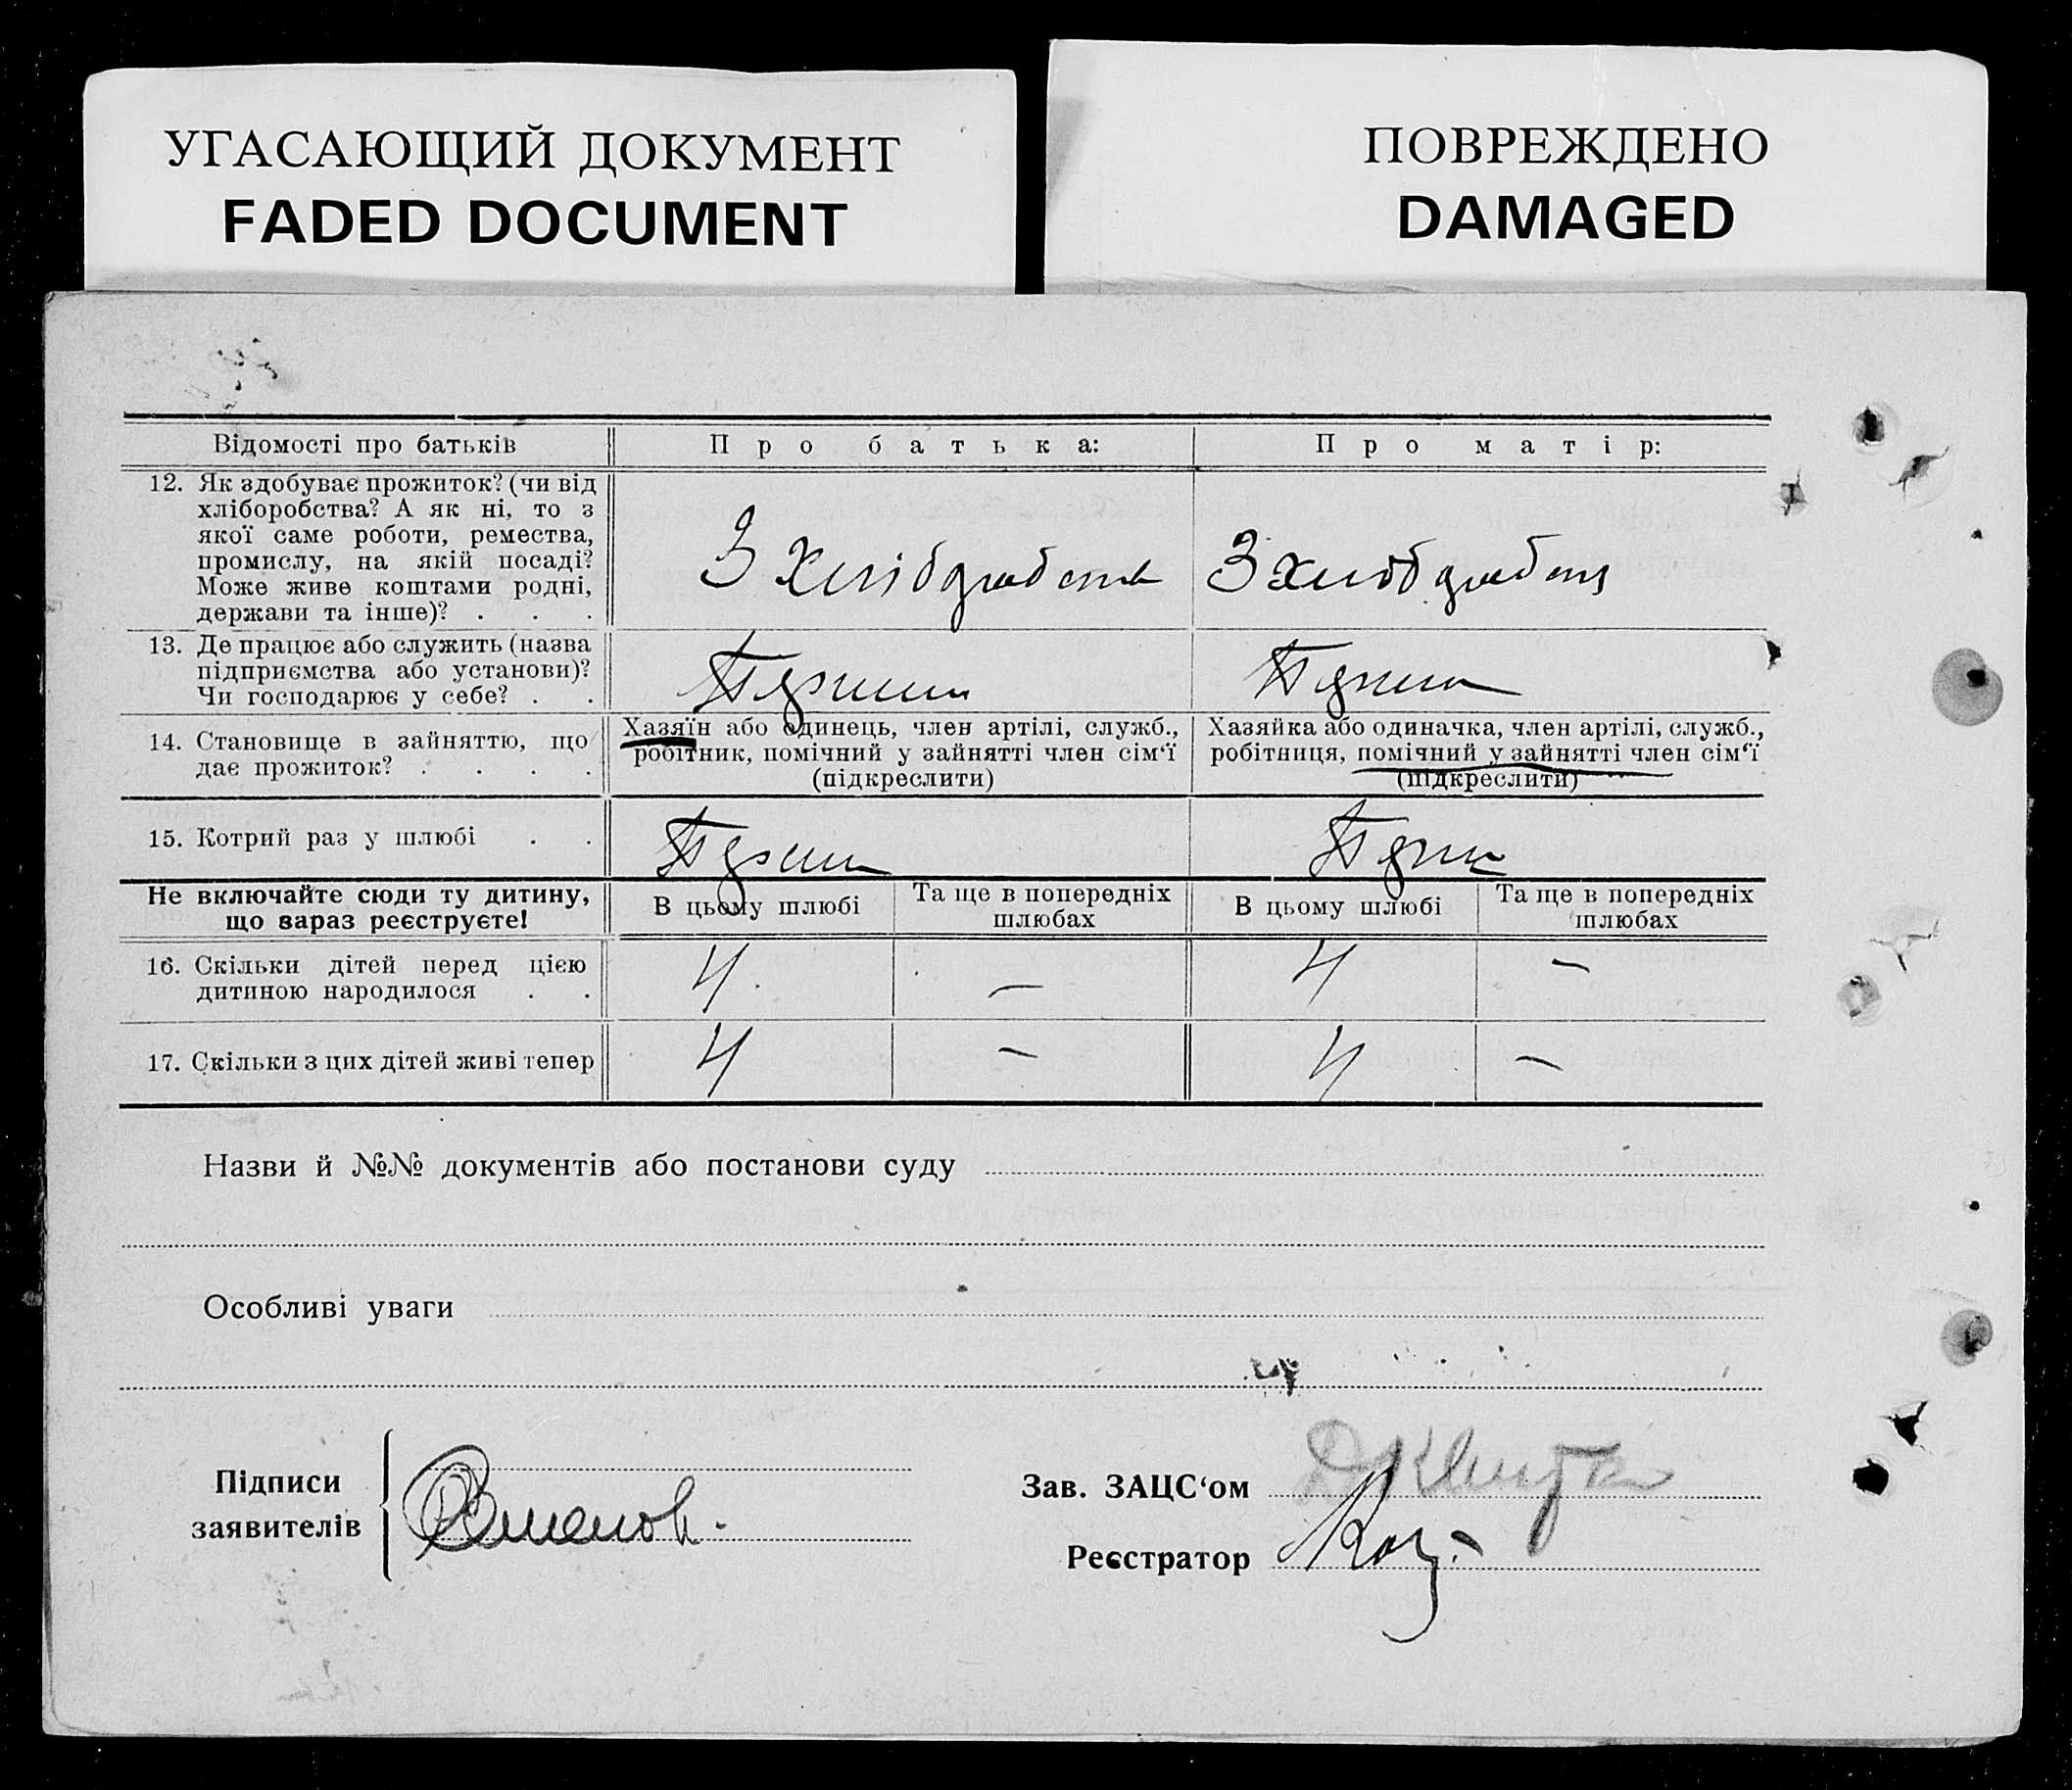 УГАСАЮЩИЙ ДОКУМЕНТ
FADED DOCUMENT
ПОВРЕЖДЕНО
DAMAGED
Відомості про батьків
Про батька:
Про матір:
12. Як здобуває прожиток? (чи від
хліборобства? А як ні, то з
якої саме роботи, ремества,
промислу, на якій посаді?
Може живе коштами родні,
держави та інше)? . . .
З Хліборобства
З хліборобства
13. Де працює або служить (назва
підприємства або установи)?
Чи господарює у себе? . .
14. Становище в зайняттю, що
дає прожиток? . . . .
Хазяїн або одинець, член артілі, служб.,
робітник, помічний у зайнятті член сім‘ї
(підкреслити)
Хазяйка або одиначка, член артілі, служб.,
робітниця, помічний у зайнятті член сім‘ї
(підкреслити)
15. Котрий раз у шлюбі . .
Не включайте сюди ту дитину,
що зараз реєструєте!
В цьому шлюбі
Та ще в попередніх
шлюбах
В цьому шлюбі
Та ще в попередніх
шлюбах
16. Скільки дітей перед цією
дитиною народилося . .
4
—
4
—
17. Скільки з цих дітей живі тепер
4
—
4
—
Назви й №№ документів або постанови суду
Особливі уваги
Підписи
заявителів
Зав. ЗАЦС‘ом
Реєстратор